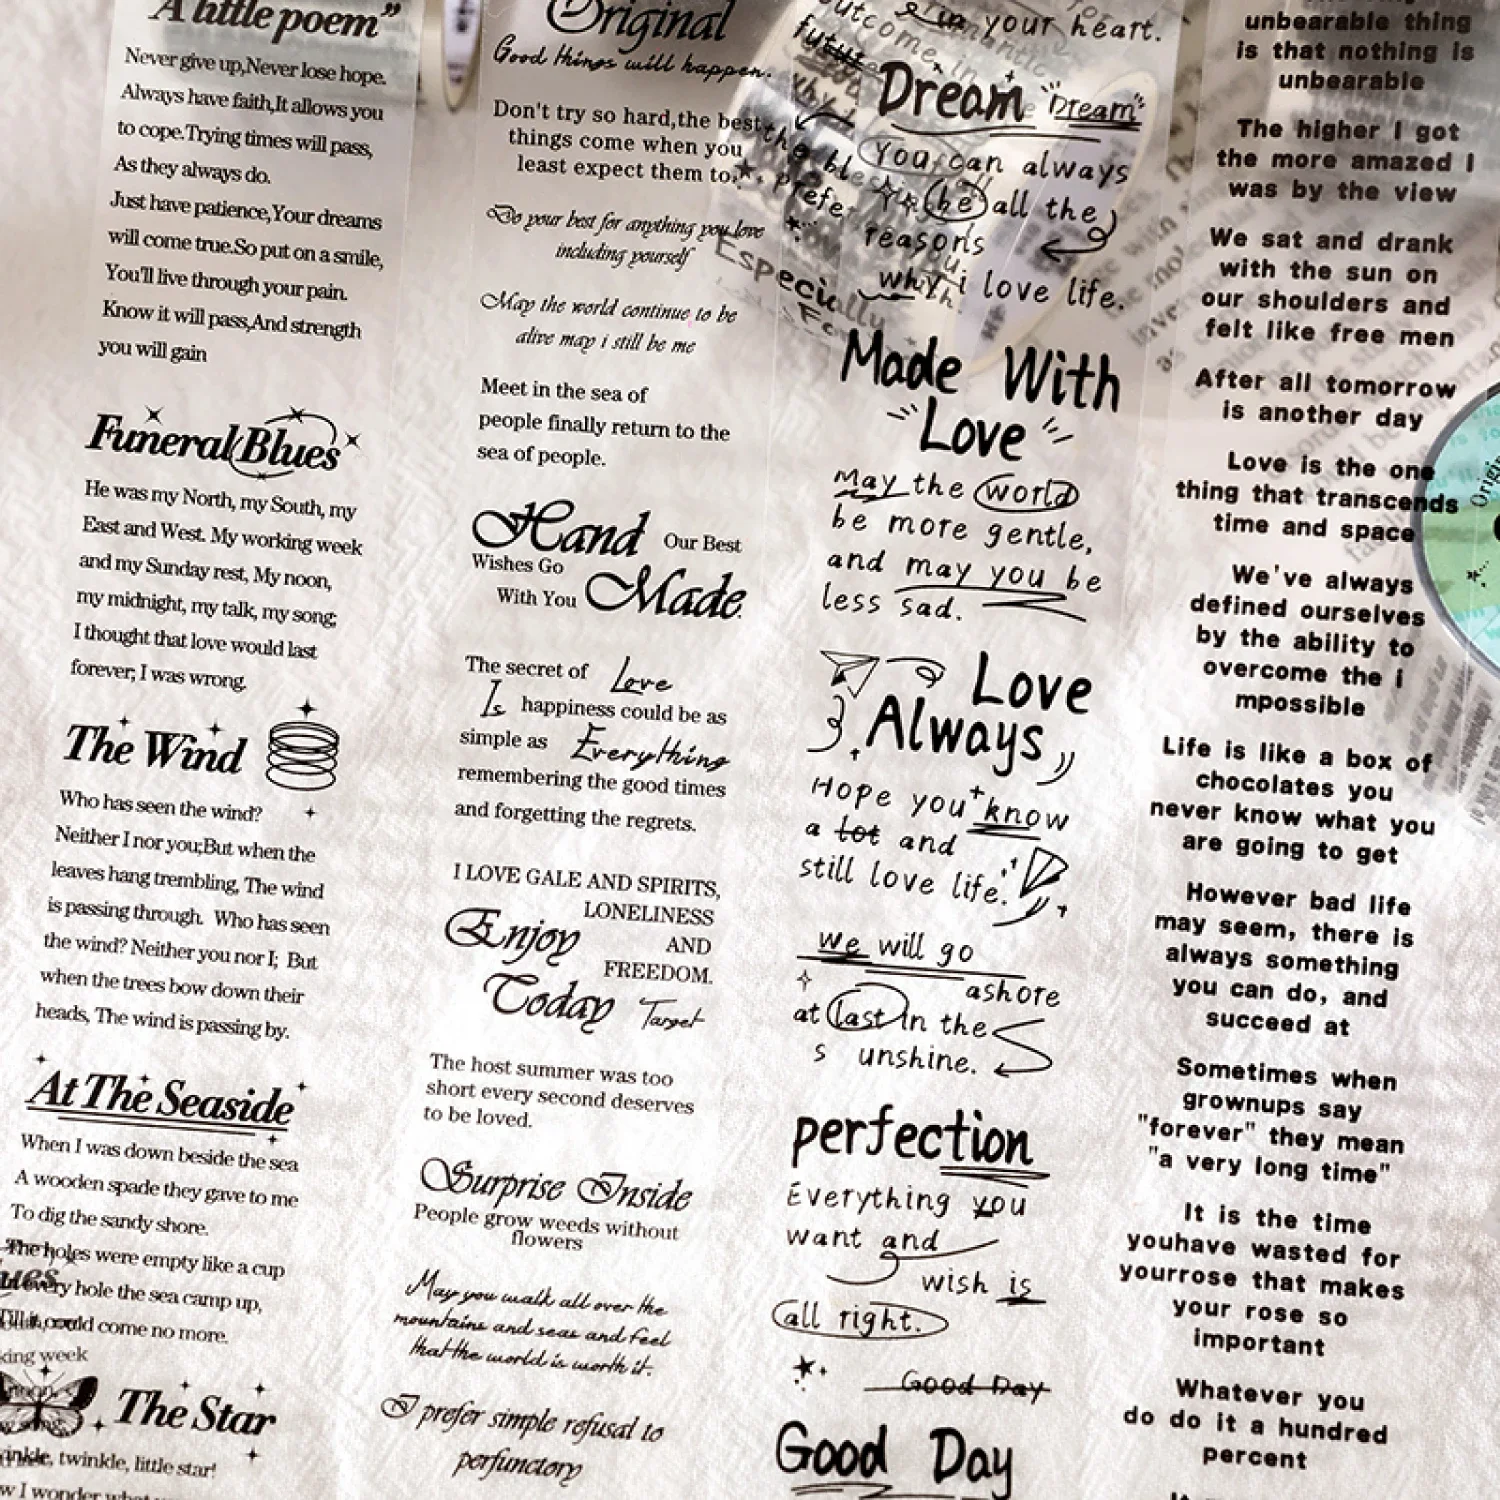 A little poem”
Never give up,Never lose hope.
Always have faith,It allows you
to cope.Trying times will pass,
As they always do.
Just have patience,Your dreams
will come true.So put on a smile,
You'll live through your pain.
Know it will pass,And strength
you will gain
Funeral Blues
He was my North, my South, my
East and West. My working week
and my Sunday rest, My noon,
my midnight, my talk, my song;
I thought that love would last
forever; I was wrong.
The Wind
Who has seen the wind?
Neither I nor you;But when the
leaves hang trembling, The wind
is passing through. Who has seen
the wind? Neither you nor I; But
when the trees bow down their
heads, The wind is passing by.
At The Seaside
When I was down beside the sea
A wooden spade they gave to me
To dig the sandy shore.
The holes were empty like a cup
In every hole the sea camp up,
Till it could come no more.
king week
The Star
twinkle, little star!
I wonder what
Original
Good things will happen.
Don't try so hard,the best
things come when you
least expect them to.
Do your best for anything you love
including yourself
May the world continue to be
alive may i still be me
Meet in the sea of
people finally return to the
sea of people.
Hand Our Best
Wishes Go
With You Made
The secret of Love
Is happiness could be as
simple as Everything
remembering the good times
and forgetting the regrets.
I LOVE GALE AND SPIRITS,
LONELINESS
Enjoy AND
FREEDOM.
Today Target
The host summer was too
short every second deserves
to be loved.
Surprise Inside
People grow weeds without
flowers
May you walk all over the
mountains and seas and feel
that the world is worth it.
I prefer simple refusal to
perfunctory
in your heart.
Dream "Dream"
You can always
be all the
reasons
why i love life.
Especially
Made With
Love
May the world
be more gentle,
and may you be
less sad.
Love
Always
Hope you know
a lot and
still love life.
We will go
ashore
at last in the
s unshine.
perfection
Everything you
want and
wish is
all right.
Good Day
Good Day
unbearable thing
is that nothing is
unbearable
The higher I got
the more amazed I
was by the view
We sat and drank
with the sun on
our shoulders and
felt like free men
After all tomorrow
is another day
Love is the one
thing that transcends
time and space
We've always
defined ourselves
by the ability to
overcome the i
mpossible
Life is like a box of
chocolates you
never know what you
are going to get
However bad life
may seem, there is
always something
you can do, and
succeed at
Sometimes when
grownups say
"forever" they mean
"a very long time"
It is the time
youhave wasted for
yourrose that makes
your rose so
important
Whatever you
do do it a hundred
percent